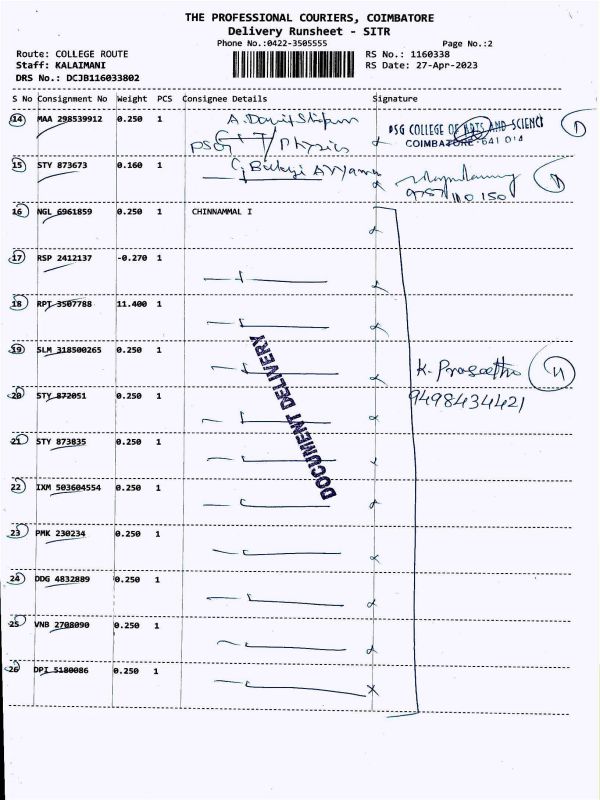 THE PROFESSIONAL COURIERS, COIMBATORE
Delivery Runsheet - SITR
Phone No.:0422-3505555 Page No.:2
Route: COLLEGE ROUTE RS No.: 1160338
Staff: KALAIMANI RS Date: 27-Apr-2023
DRS No.: DCJB116033802
S No Consignment No Weight PCS Consignee Details Signature
14 MAA 298539912 0.250 1 PSG COLLEGE OF ARTS AND SCIENCE
COIMBATORE-641 014
PSG Physics
15 STY 873673 0.160 1
16 NGL 6961859 0.250 1 CHINNAMMAL I
17 RSP 2412137 -0.270 1
18 RPT 3507788 11.400 1
19 SLM 318500265 0.250 1
K.
20 STY 872051 0.250 1 9498434421
21 STY 873835 0.250 1
DOCUMENT DELIVERY
22 IXM 503604554 0.250 1
23 PMK 230234 0.250 1
24 DDG 4832889 0.250 1
25 VNB 2708090 0.250 1
26 DPI 5180086 0.250 1